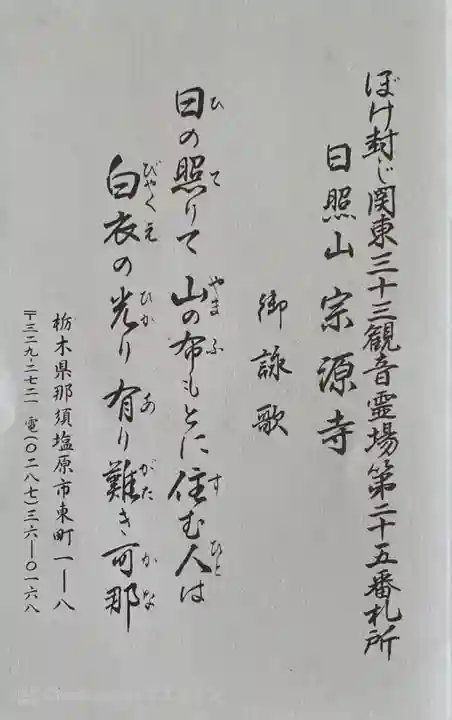 ぼけ封じ関東三十三観音霊場第二十五番札所
日照山宗源寺
御詠歌
日の照りて山の布もとに住む人は
ひ て やま ふ す ひと
白衣の光り有り難き可那
びゃくえ ひか あ がた かな
栃木県那須塩原市東町一―八
〒三二九-二七二一 電(〇二八七)三六―〇一六八